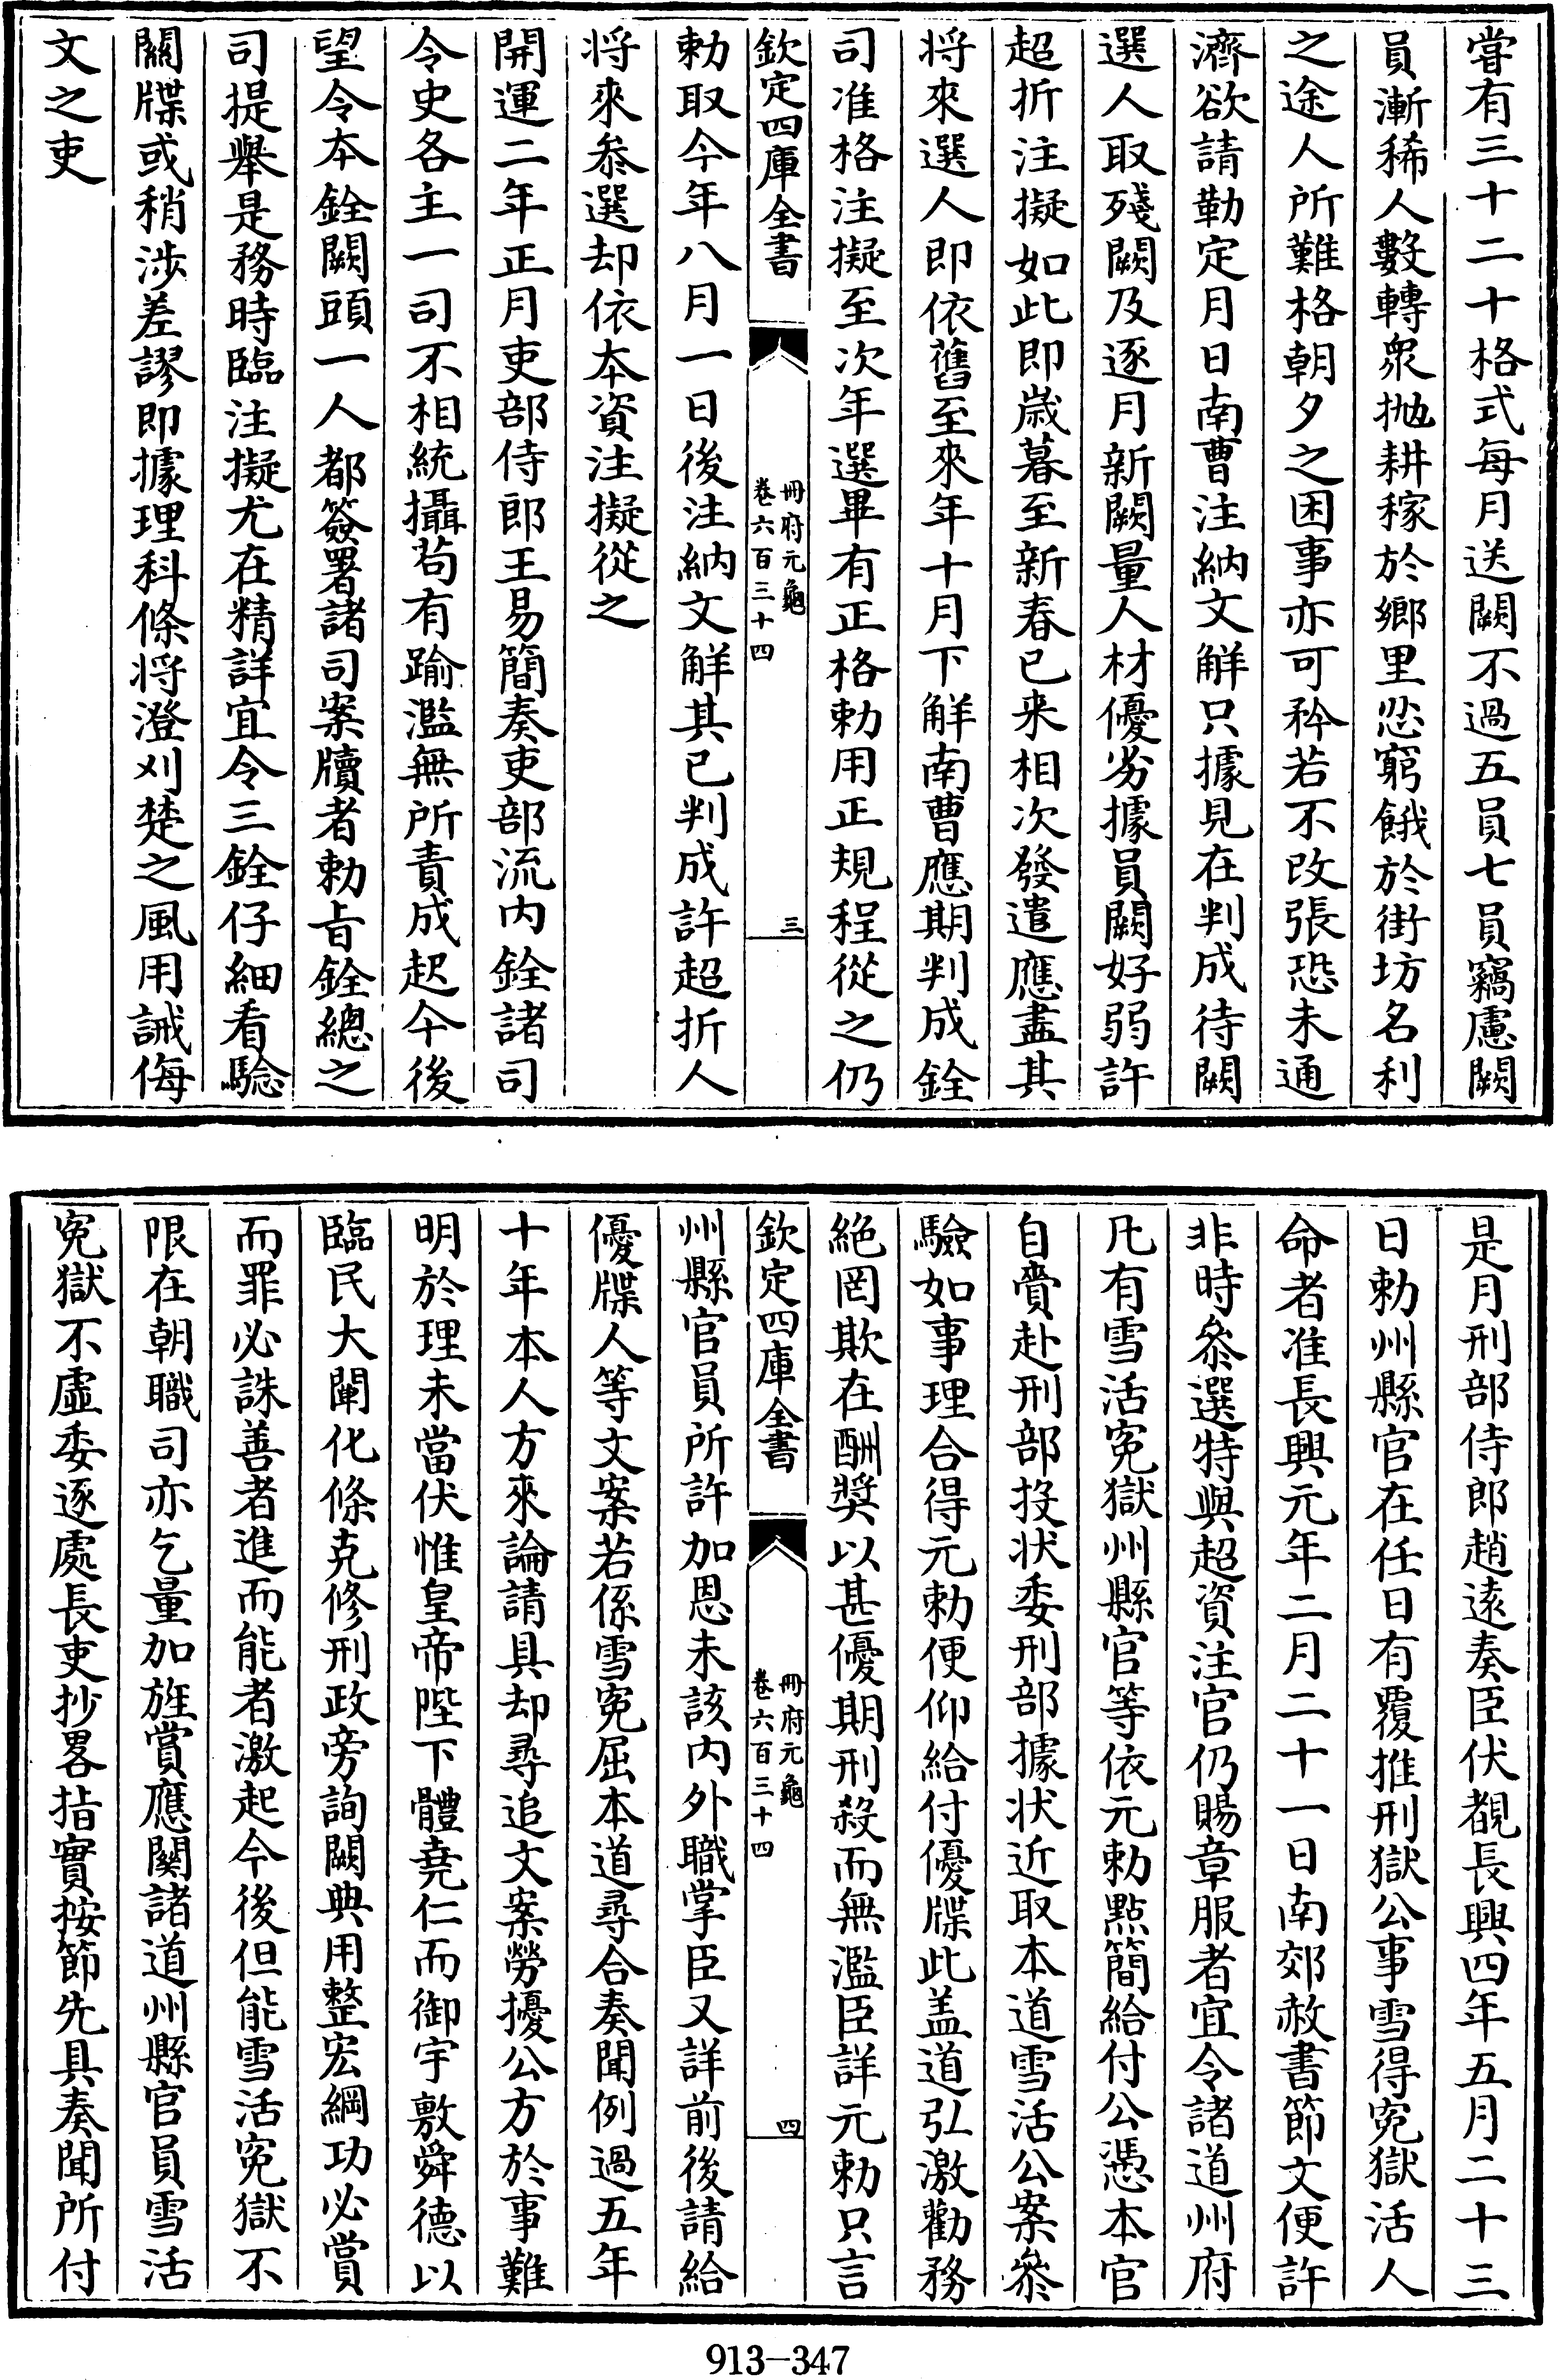 嘗有三十二十格式每月送闕不過五員七員竊慮闕
員漸稀人數轉衆抛耕稼於鄉里忍窮餓於街坊名利
之途人所難格朝夕之困事亦可矜若不改張恐未通
濟欲請勒定月日南曹注納文解只據見在判成待闕
選人取殘闕及逐月新闕量人材優劣據員闕好弱許
超折注擬如此即歳暮至新春已来相次發遣應盡其
将來選人即依舊至來年十月下解南曹應期判成銓
司准格注擬至次年選畢有正格勅用正規程從之仍
欽定四庫全書
冊府元龜
卷六百三十四
三
勅取今年八月一日後注納文解其已判成許超折人
将來叅選却依本資注擬從之
開運二年正月吏部侍郎王易簡奏吏部流内銓諸司
令史各主一司不相統攝茍有踰濫無所責成起今後
望令本銓闕頭一人都簽署諸司案牘者勅旨銓總之
司提舉是務時臨注擬尤在精詳宜令三銓仔細看驗
關牒或稍涉差謬即據理科條将澄刈楚之風用誡侮
文之吏
是月刑部侍郎趙遠奏臣伏覩長興四年五月二十三
日勅州縣官在任日有覆推刑獄公事雪得寃獄活人
命者准長興元年二月二十一日南郊赦書節文便許
非時叅選特與超資注官仍賜章服者宜令諸道州府
凡有雪活寃獄州縣官等依元勅點簡給付公憑本官
自賫赴刑部投状委刑部據状近取本道雪活公案叅
驗如事理合得元勅便仰給付優牒此盖道弘激勸務
絶罔欺在酬奬以甚優期刑殺而無濫臣詳元勅只言
欽定四庫全書
冊府元龜
卷六百三十四
四
州縣官員所許加恩未該内外職掌臣又詳前後請給
優牒人等文案若係雪寃屈本道尋合奏聞例過五年
十年本人方來論請具却尋追文案勞擾公方於事難
明於理未當伏惟皇帝陛下體堯仁而御宇敷舜德以
臨民大闡化條克修刑政旁詢闕典用整宏綱功必賞
而罪必誅善者進而能者激起今後但能雪活寃獄不
限在朝職司亦乞量加旌賞應關諸道州縣官員雪活
寃獄不虛委逐處長吏抄畧指實按節先具奏聞所付
913-347